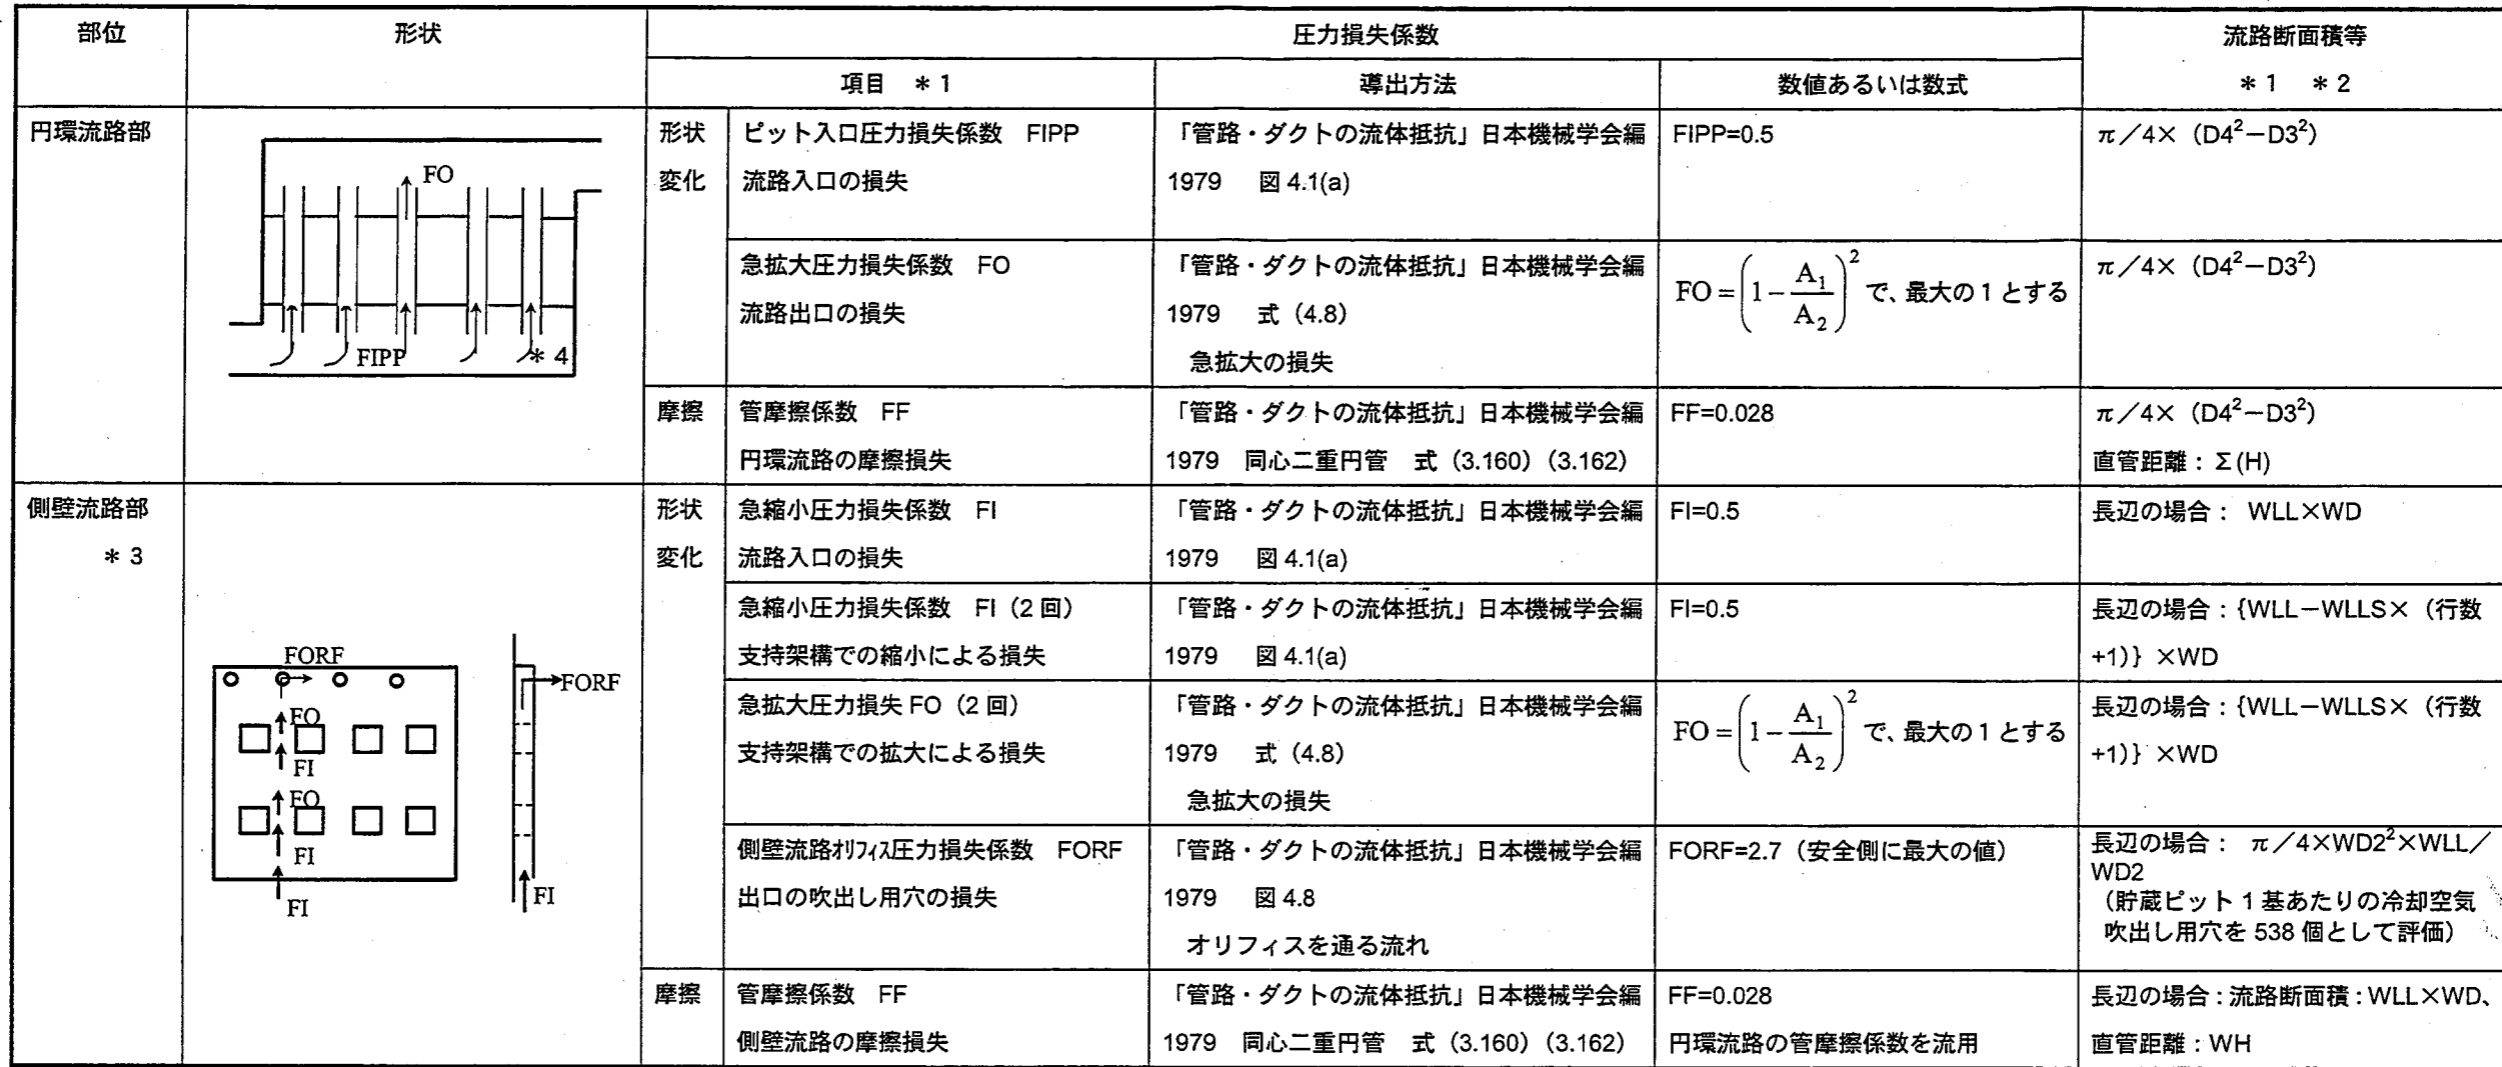 部位
形状
圧力損失係数
流路断面積等
＊1　＊2
項目　＊1
導出方法
数値あるいは数式
円環流路部
FO
FIPP
＊4
形状
変化
ピット入口圧力損失係数　FIPP
流路入口の損失
「管路・ダクトの流体抵抗」日本機械学会編
1979　図 4.1(a)
FIPP=0.5
π／4×（D4²－D3²）
急拡大圧力損失係数　FO
流路出口の損失
「管路・ダクトの流体抵抗」日本機械学会編
1979　式（4.8）
急拡大の損失
FO = (1 − A₁/A₂)² で、最大の 1 とする
π／4×（D4²－D3²）
摩擦
管摩擦係数　FF
円環流路の摩擦損失
「管路・ダクトの流体抵抗」日本機械学会編
1979　同心二重円管　式（3.160）（3.162）
FF=0.028
π／4×（D4²－D3²）
直管距離：Σ(H)
側壁流路部
＊3
FORF
FO
FI
FO
FI
FI
FORF
FI
形状
変化
急縮小圧力損失係数　FI
流路入口の損失
「管路・ダクトの流体抵抗」日本機械学会編
1979　図 4.1(a)
FI=0.5
長辺の場合：　WLL×WD
急縮小圧力損失係数　FI（2 回）
支持架構での縮小による損失
「管路・ダクトの流体抵抗」日本機械学会編
1979　図 4.1(a)
FI=0.5
長辺の場合：{WLL－WLLS×（行数
+1)} ×WD
急拡大圧力損失 FO（2 回）
支持架構での拡大による損失
「管路・ダクトの流体抵抗」日本機械学会編
1979　式（4.8）
急拡大の損失
FO = (1 − A₁/A₂)² で、最大の 1 とする
長辺の場合：{WLL－WLLS×（行数
+1)} ×WD
側壁流路ｵﾘﾌｨｽ圧力損失係数　FORF
出口の吹出し用穴の損失
「管路・ダクトの流体抵抗」日本機械学会編
1979　図 4.8
オリフィスを通る流れ
FORF=2.7（安全側に最大の値）
長辺の場合：　π／4×WD2²×WLL／
WD2
（貯蔵ピット 1 基あたりの冷却空気
吹出し用穴を 538 個として評価）
摩擦
管摩擦係数　FF
側壁流路の摩擦損失
「管路・ダクトの流体抵抗」日本機械学会編
1979　同心二重円管　式（3.160）（3.162）
FF=0.028
円環流路の管摩擦係数を流用
長辺の場合：流路断面積：WLL×WD、
直管距離：WH